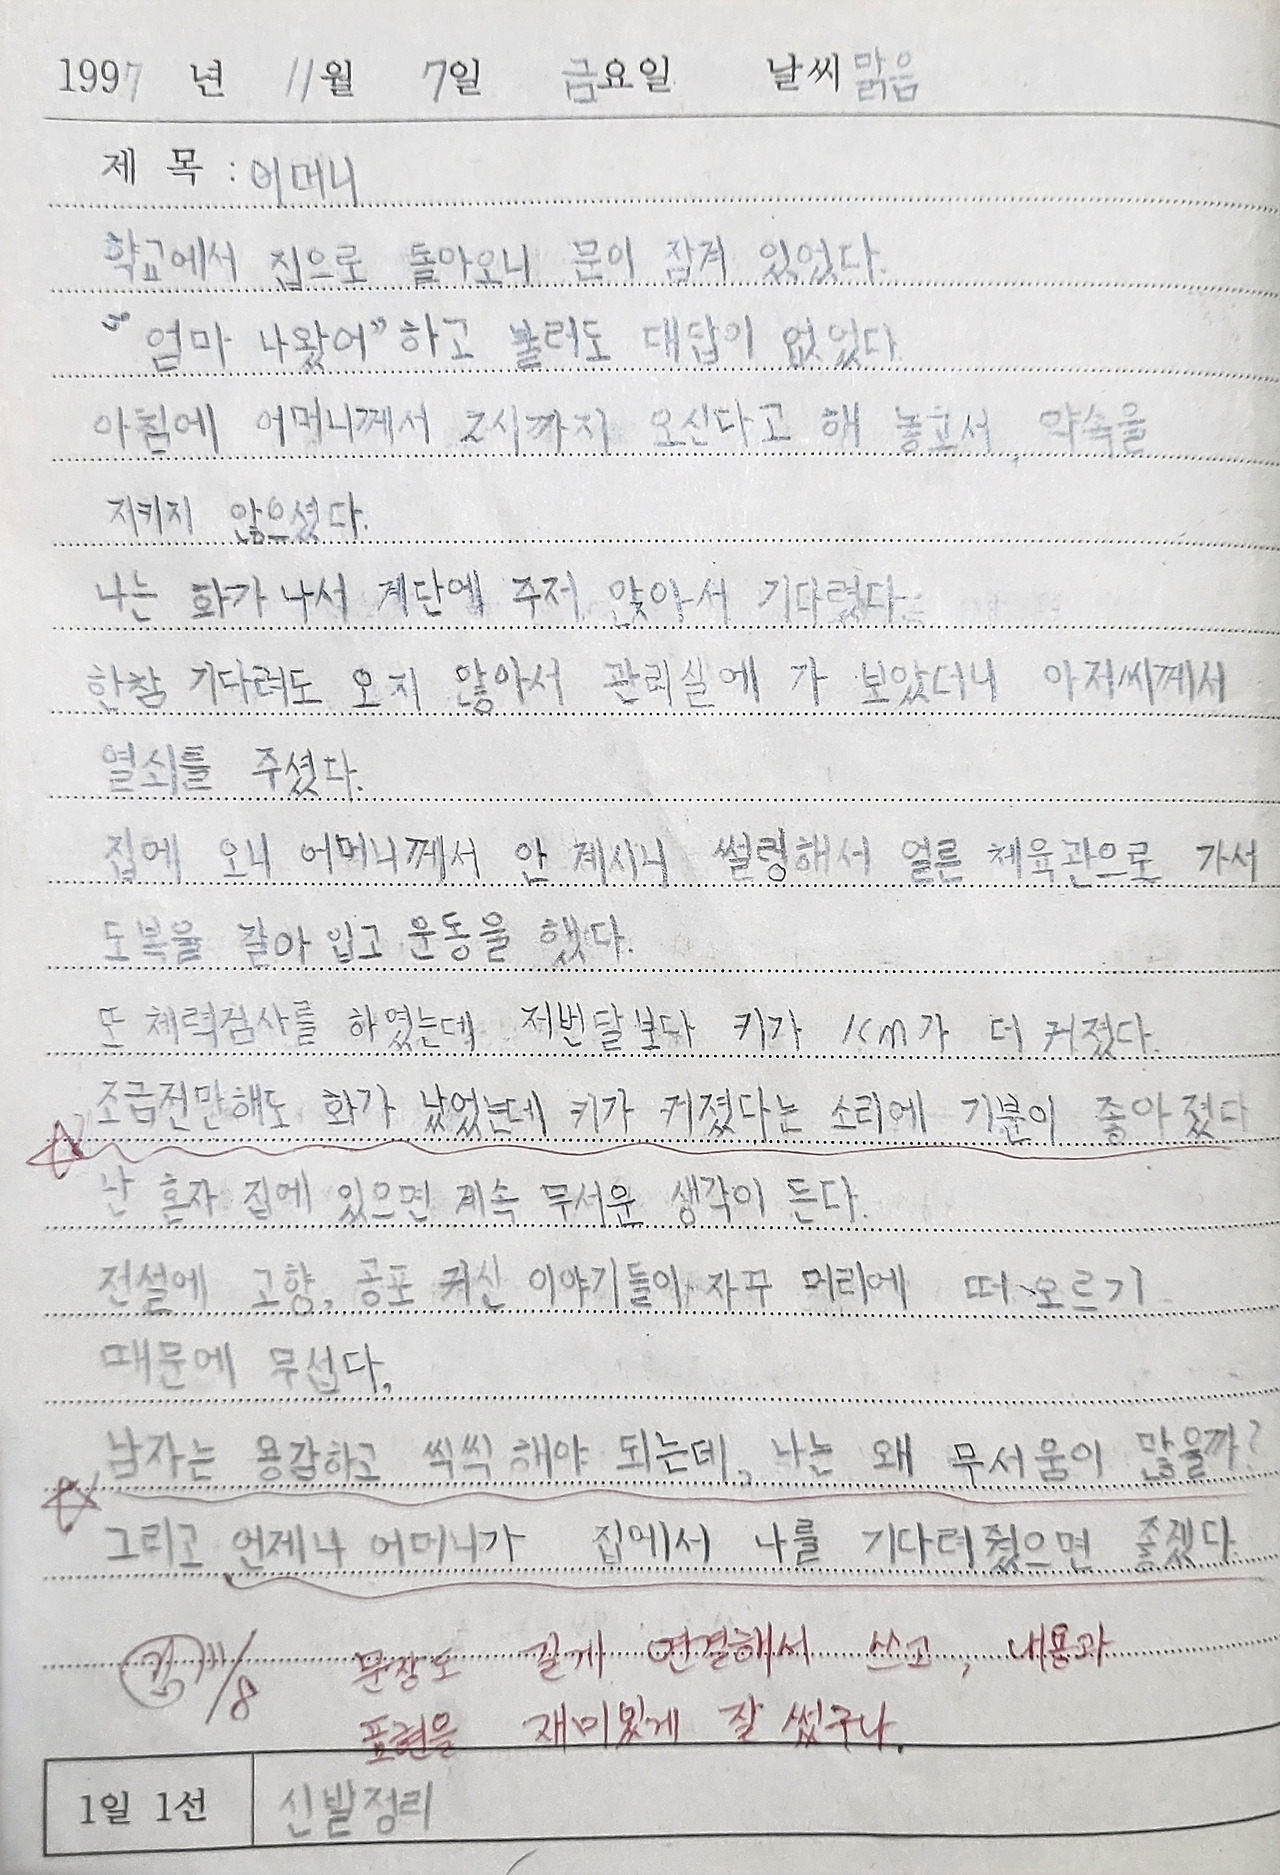 1997 년 11월 7일 금요일 날씨 맑음
제 목 : 어머니
학교에서 집으로 돌아오니 문이 잠겨 있었다.
“엄마 나왔어” 하고 불러도 대답이 없었다.
아침에 어머니께서 2시까지 오신다고 해 놓고서, 약속을
지키지 않으셨다.
나는 화가 나서 계단에 주저 앉아서 기다렸다.
한참 기다려도 오지 않아서 관리실에 가 보았더니 아저씨께서
열쇠를 주셨다.
집에 오니 어머니께서 안 계시니 썰렁해서 얼른 체육관으로 가서
도복을 갈아 입고 운동을 했다.
또 체력검사를 하였는데 저번달보다 키가 1Cm가 더 커졌다.
조금전만해도 화가 났었는데 키가 커졌다는 소리에 기분이 좋아졌다
난 혼자 집에 있으면 계속 무서운 생각이 든다.
전설에 고향, 공포 귀신 이야기들이 자꾸 머리에 떠 오르기
때문에 무섭다,
남자는 용감하고 씩씩 해야 되는데, 나는 왜 무서움이 많을까?
그리고 언제나 어머니가 집에서 나를 기다려줬으면 좋겠다.
11/8 문장도 길게 연결해서 쓰고, 내용과
표현을 재미있게 잘 썼구나.
1일 1선 신발정리